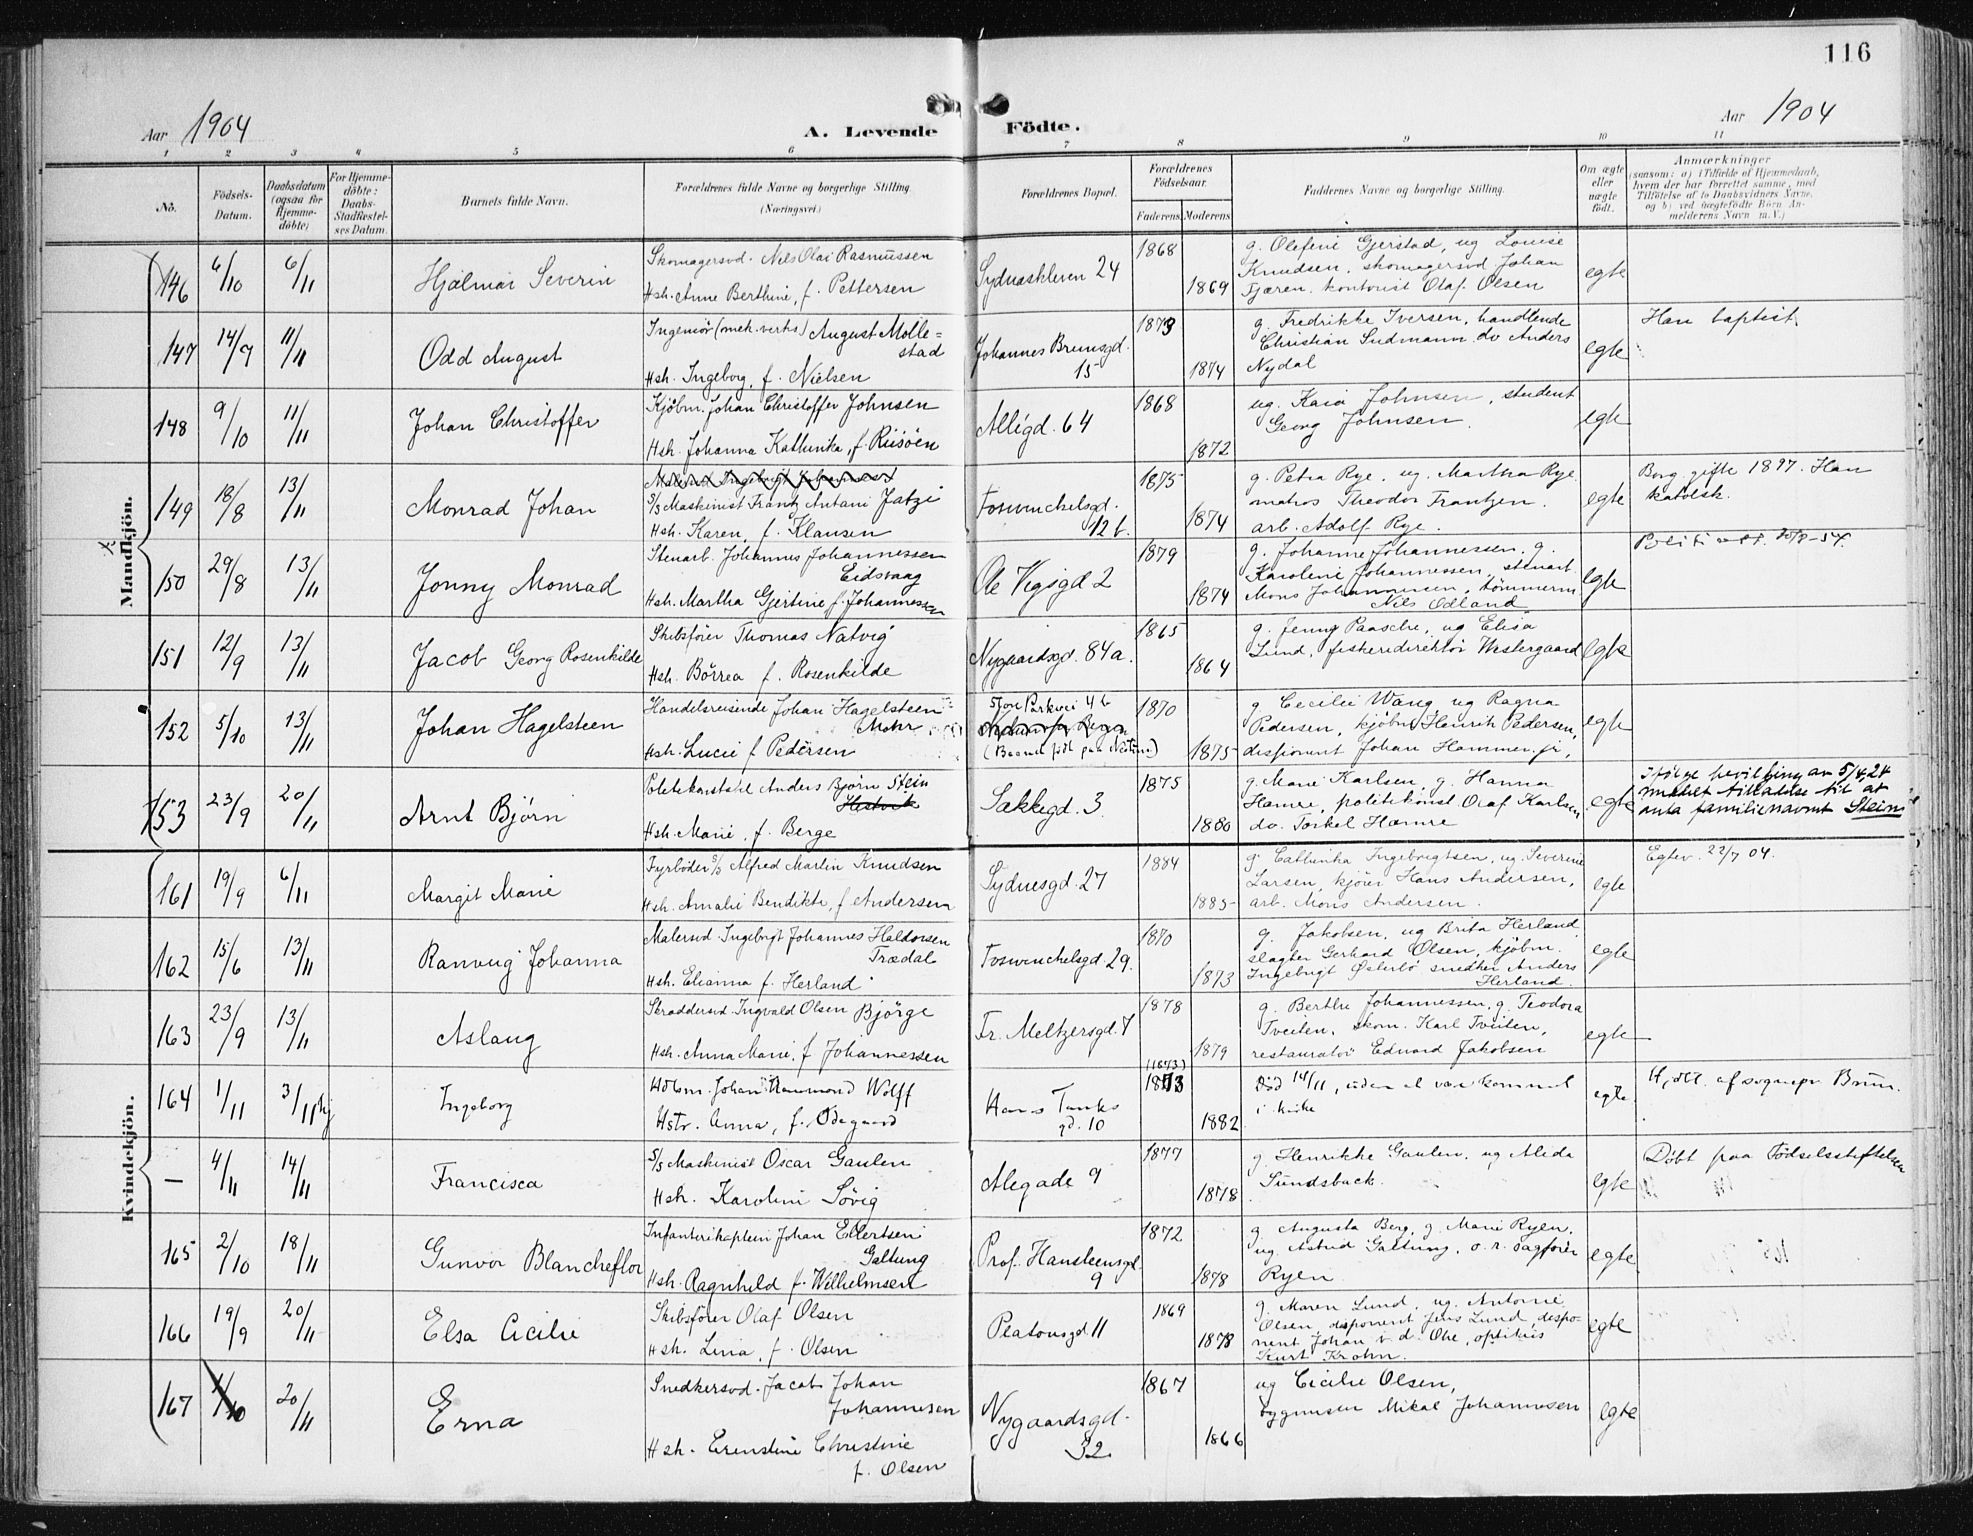 116
Aar 1904
A. Levende Födte.
Aar 1904
1 2 3 4 5 6 7 8 9 10 11
No.
Födsels-Datum.
Daabsdatum (ogsaa for Hjemme-döbte)
For Hjemme-döbte: Daabs-Stadfæstel-ses Datum.
Barnets fulde Navn.
Forældrenes fulde Navne og borgerlige Stilling (Næringsvei.)
Forældrenes Bopæl.
Forældrenes Födselsaar.
Faderens Moderens
Faddernes Navne og borgerlige Stilling.
Om ægte eller uægte födt.
Anmærkninger
(saasom: a) i Tilfælde af Hjemmedaab,
hvem der har forrettet samme, med
Tilföielse af to Daabsvidners Navne,
og b) ved uægtefödte Börn An-
melderens Navn m. V.)
Mandkjön.
146 6/10 6/11 Hjalmar Severin
Skomagersvd. Nils Olai Rasmussen
Hsh. Anne Berthine, f. Pettersen
Sydnæskleven 24
1868
1869
g. Olefine Gjerstad, ug Louise
Knudsen, skomagersvd Johan
Fjæren, kontorist Olaf Olsen
egte
147 14/9 11/11 Odd August
Ingeniör (mek. verks.) August Molle=
stad
Hsh. Ingeborg, f. Nielsen
Johannes Brunsgd.
15
1873
1874
g. Fredrikke Iversen, handlende
Christian Sudmann do Anders
Nydal
egte
Han baptist
148 9/10 11/11 Johan Christoffer
Kjöbm. Johan Christoffer Johnsen
Hsh. Johanna Kathinka, f. Riisöen
Allégd. 64
1868
1872
ug. Kaia Johnsen, student
Georg Johnsen.
egte
149 18/8 13/11 Monrad Johan
S/S Maskinist Frantz Antani Jatzi
Hsh. Karen, f. Klausen
Foswinchelsgd.
12 b.
1875
1874
g. Petra Rye, ug. Martha Rye
matros Theodor Frantzen.
arb. Adolf Rye.
egte
Borg. gifte 1897. Han
katolsk.
150 29/8 13/11 Jonny Monrad
Stenarb. Johannes Johannessen
Eidsvaag
Hsh. Martha Gjertine f. Johannessen
Ole Vigsgd 2
1879
1874
g. Johanne Johannessen, g.
Karoline Johannessen, stenarb
Mons Johannessen, tömmerm
Nils Odland
egte
151 12/9 13/11 Jacob Georg Rosenkilde
Skibsförer Thomas Natvig
Hsh. Börrea f. Rosenkilde
Nygaardsgd. 84a.
1865
1864
g. Jenny Paasche, ug Elisa
Lund, fiskeridirektör Westergaard
egte
152 5/10 13/11 Johan Hagelsteen
Handelsreisende Johan Hagelsteen
Mohr
Hsh. Lucie f Pedersen
Parkvei 4 b
1870
1875
g Cecilie Wang ug Ragna
Pedersen, kjöbm Henrik Pedersen,
disponent Johan Hammer jr,
egte
153 23/9 20/11 Arnt Björn
Politikonstabel Anders Björn Stein
Hsh. Marie, f. Berge
Sakkegd. 3
1875
1880
g. Marie Karlsen, g. Hanna
Hamre, politikonst Olaf Karlsen
do. Torkel Hamre
egte
Ifölge bevilling av 5/4 24
meddelt tilladelse til at
anta familienavnet Stein
Kvindekjön.
161 19/9 6/11 Margit Marie
Fyrböder S/S Alfred Martin Knudsen
Hsh. Amalie Bendikte, f Andersen
Sydnesgd. 27
1884
1885
g. Cathinka Ingebrigtsen, ug. Severine
Larsen, kjörer Hans Andersen,
arb. Mons Andersen.
egte
Egtev. 22/7 04.
162 15/6 13/11 Ranveig Johanna
Malersvd. Ingebrigt Johannes Haldorsen
Trædal
Hsh. Elianna f. Herland
Foswinchelsgd. 29.
1870
1873
g. Jakobsen, ug Brita Herland
slagter Gerhard Olsen, kjöbm.
Ingebrigt Österbö snedker Anders
Herland.
egte
163 23/9 13/11 Aslaug
Skræddersvd. Ingvald Olsen Björge
Hsh. Anna Marie, f Johannessen
Fr. Meltzersgd. 7
1878
1879
g. Berthe Johannessen, g. Teodora
Tveiten, skom. Karl Tveiten,
restauratör Edvard Jakobsen
egte
164 1/11 3/11 hj Ingeborg
Johan Wolff
Hstr. Anna, f. Ödegaard
Hans Tanks
gd. 10
(1873)
1873
1882
Död 14/11, uden at være kommet
i kirke
egte
Hj. dbt. af sognepr. Brun.
— 4/11 14/11 Francisca
S/S Maskinist Oscar Gaulen
Hsh. Karoline Sövig
Alegade 9
1877
1878
g Henrikke Gaulen, ug Alida
Sundsback.
egte
Döbt paa Födselsstiftelsen
165 2/10 18/11 Gunvor Blancheflor
Infanterikaptein Johan Ellertsen
Galtung
Hsh. Ragnhild f. Wilhelmsen
Prof. Hansteensgd.
9
1872
1878
g. Augusta Berg, g. Marie Ryen,
ug Astrid Galtung, o.r. sagförer
Ryen
egte
166 19/9 20/11 Elsa Cicilie
Skibsförer Olaf Olsen
Hsh. Lina, f. Olsen
Platousgd 11
1869
1878
g. Maren Lund, ug. Antonie
Olsen, disponent Jens Lund, dispo-
nent Johan v. d. Ohe, optikus
Kurt Krohn.
egte
167 20/11 Erna
Snedkersvd. Jacob Johan
Johannesen
Hsh. Ernstine Christine
f. Olsen
Nygaardsgd.
32
1867
1866
ug Cicilie Olsen,
bygmester Mikal Johannesen
egte